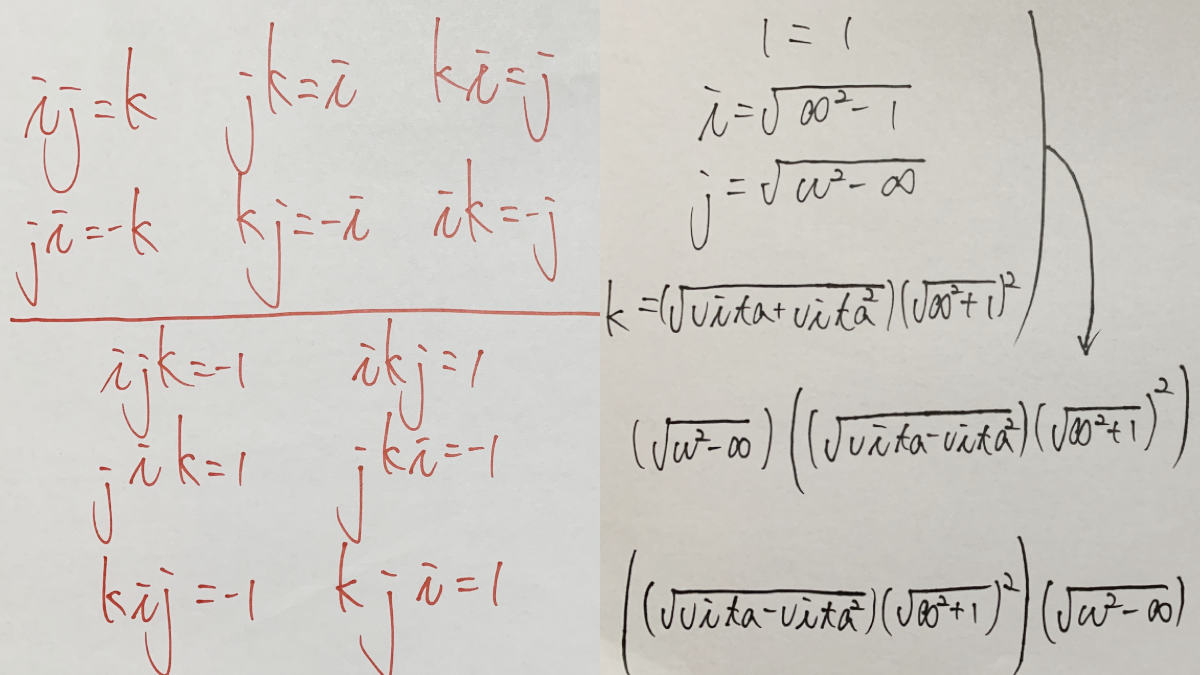 ij=k jk=i ki=j
ji=-k kj=-i ik=-j
ijk=-1 ikj=1
jik=1 jki=-1
kij=-1 kji=1
1=1
i=√(∞²-1)
j=√(ω²-∞)
k=(√(vita+vita²))(√(∞²+1))²
(√(ω²-∞))((√(vita-vita²))(√(∞²+1))²)
((√(vita-vita²))(√(∞²+1))²)(√(ω²-∞))